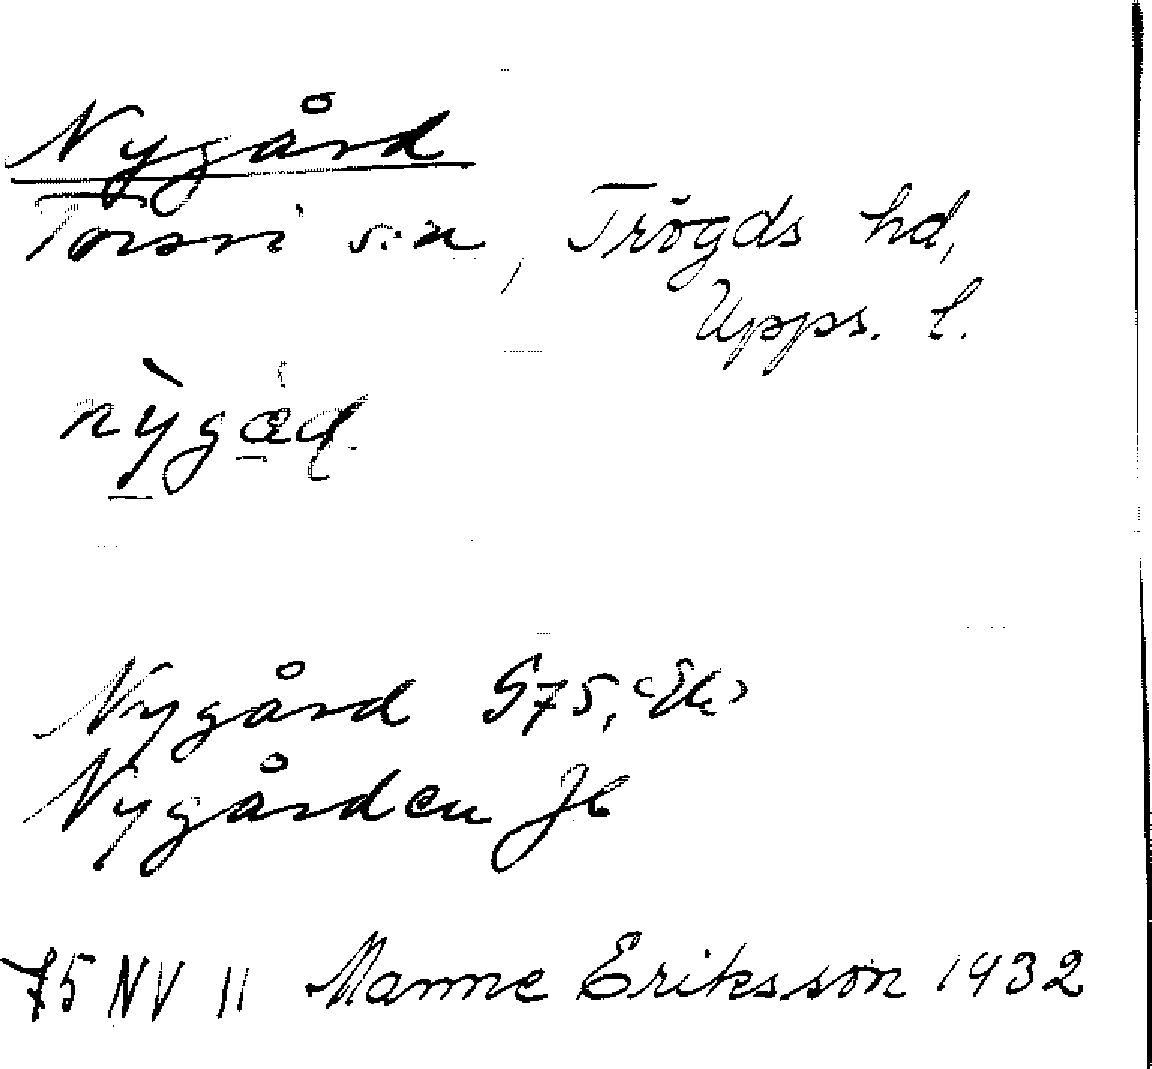 Nygård
Torsvi s:n, Trögds hd,
Upps. l.
Nygård G75,
Nygården Jb
75 NV 11 Manne Eriksson 1932